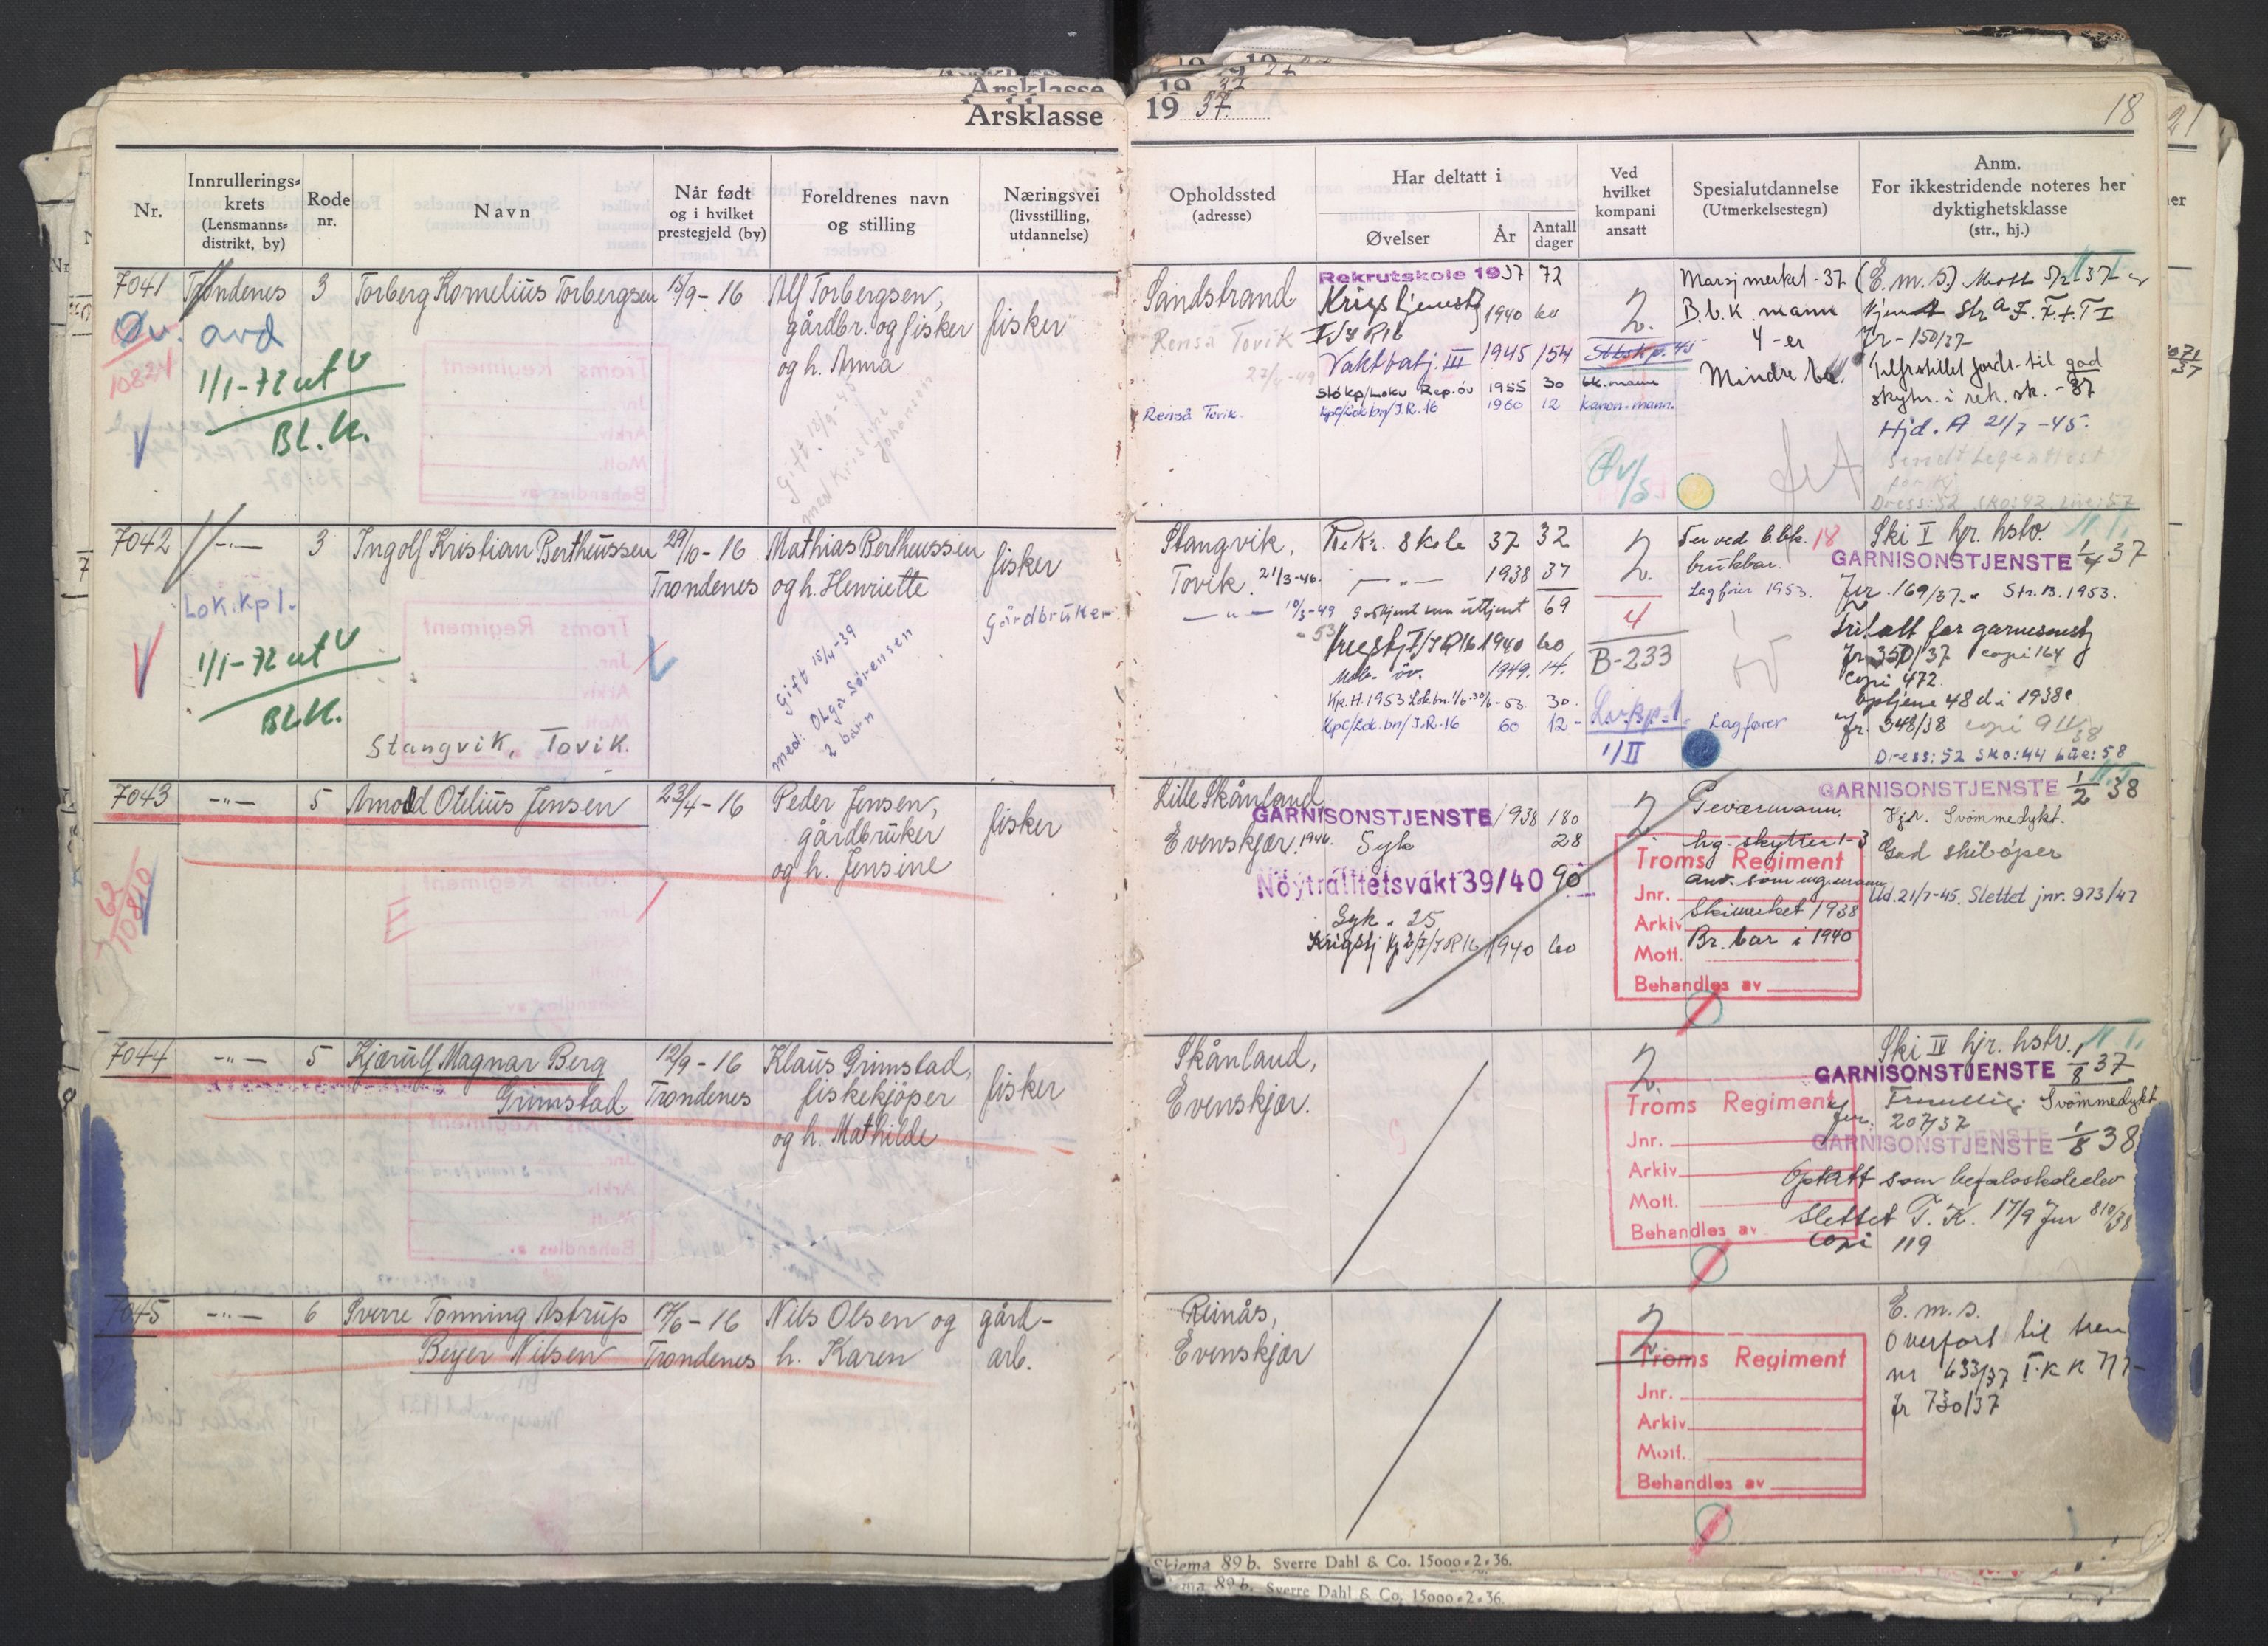 Årsklasse 1937.
18
Nr.
Innrullerings-
krets
(Lensmanns-
distrikt, by)
Rode
nr.
Navn
Når født
og i hvilket
prestegjeld (by)
Foreldrenes navn
og stilling
Næringsvei
(livsstilling,
utdannelse)
Opholdssted
(adresse)
Har deltatt i
Øvelser
År
Antall
dager
Ved
hvilket
kompani
ansatt
Spesialutdannelse
(Utmerkelsestegn)
Anm.
For ikkestridende noteres her
dyktighetsklasse
(str., hj.)
7041 Trondenes 3 Torberg Kornelius Torbergsen 15/9-16 Alf Torbergsen,
gårdbr. og fisker fisker
og h. Anna
Øv. avd
10821
1/1-72 ut V
Bl.K.
Gift 13/9-45
med Kristine
Johansen
Sandstrand
Renså Tovik
27/4-49
Renså Tovik.
Rekrutskole 1937 72
Krigstjenest
I/IR16 1940 60
Vaktbatj. III 1945 154
Stökp/Loku Rep.öv 1955 30 bk.mann
Kpl/Lok bn/I.R.16 1960 12 kanon.mann.
2.
Stbskp. 45
Øv/s.
Marsjmerket-37
B.b.K. mann
4-er
Mindre ba.
(E.m.s)
Jr-150/37
Tilfrstillet fordr. til god
skytn. i rek. sk. -37
Hjd. A 21/7-45.
Sendt Legeattest
Dress: 52 sko: 42 lue: 57
7042 -"- 3 Ingolf Kristian Bertheussen 29/10-16 Mathias Bertheussen fisker
Trondenes og h. Henriette
Gårdbruker
Lok.kpl.
1/1-72 ut V
Bl.K.
Stangvik, Tovik.
Gift 15/4-39
med: Olga Sørensen
2 barn
Stangvik,
Tovik. 21/3-46.
-"- 10/3-49
-53
Rekr. Skole 37 32
-"- 1938 37
Godkjent som uttjent 69
Krigstj I/IR16 1940 60
Mob. öv. 1949. 14.
Kp.H.1953 Lok.bn. 1/6-30/6-53 30.
Kpl/Lok.bn/I.R.16 60 12-
2
2.
4
B-233
Lo.kp.1.
1/II
5er ved b.bk. 18
brukbar.
Lagfører 1953.
Lagfører
Ski I hjr. hstv.
GARNISONSTJENSTE 1/4 37
Jnr. 169/37. Str. B. 1953.
fritatt for garnisonstj
Jr. 350/37 copi 164
copi 472
optjene 48 d i 1938
Jr. 348/38 copi 911/38
Dress: 52 sko: 44 lue: 58
7043 -"- 5 Arnold Otelius Jensen 23/4-16 Peder Jensen,
gårdbruker fisker
og h. Jensine
62
10810
E
Lille Skånland
Evenskjær. 1946.
GARNISONSTJENSTE 1938 180
Syk 28
Nöytralitetsvakt 39/40 90
Syk. 25
Krigstj Kp 2/I/IR16 1940 60
2
Geværmann.
hg-skytter 1-3
anv. som mg.mann
Skimerket 1938
Br. bar i 1940
Troms Regiment
Jnr.
Arkiv
Mott.
Behandles av
GARNISONSTJENSTE 1/2 38
Hjr. Svömmedykt.
God skilöper
Ud. 21/7-45. Slettet jnr. 973/47
7044 -"- 5 Kjærulf Magnar Berg 12/9-16 Klaus Grimstad,
Grimstad Trondenes fiskekjöper fisker
og h. Mathilde
Skånland,
Evenskjær.
2.
Troms Regiment
Jnr.
Arkiv
Mott.
Behandles av
Ski IV hjr. hstv.
GARNISONSTJENSTE 1/8 37
Frivillig. Svömmedykt
Jnr. 207/37
GARNISONSTJENSTE 1/8 38
Optatt som befalsskoleelev
Slettet T.K. 17/9 Jnr 810/38
Copi 119
7045 -"- 6 Sverre Tonning Astrup 17/6-16 Nils Olsen og gård-
Beyer Nilsen Trondenes h. Karen arb.
Reinås,
Evenskjær
2.
Troms Regiment
Jnr.
Arkiv
Mott.
Behandles av
E.m.s.
Overfört til tren
nr 633/37 T.K.R 7/7-
Jr 730/37
Skjema 89 b. Sverre Dahl & Co. 15000.2.36.
89 b. Sverre Dahl & Co. 15000.2.36.